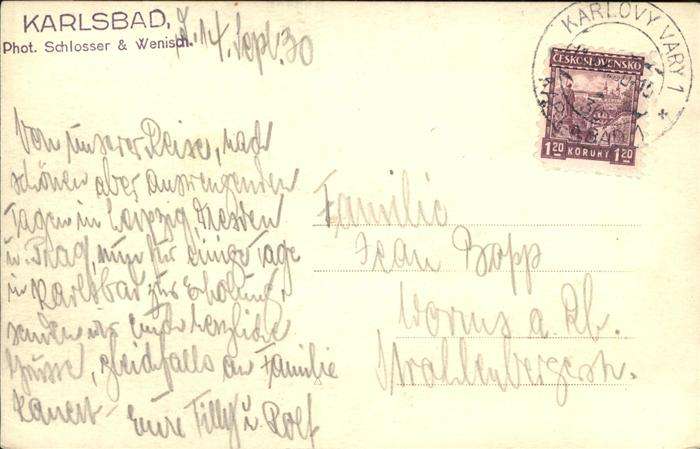 KARLSBAD, d. 14. Sept. 30
Phot. Schlosser & Wenisch.
Von unserer Reise, nach
schönen aber anstrengenden
Tagen in Leipzig, Dresden
u. Prag, nun für einige Tage
in Karlsbad zur Erholung,
senden wir Euch herzliche
Grüsse, gleichfalls an Familie
Eure Tilly u. Rolf
KARLOVY VARY 1
ČESKOSLOVENSKO
1 20 KORUNY 1 20
Familie
Jean Bopp
Worms a. Rh.
Strahlenbergerstr.